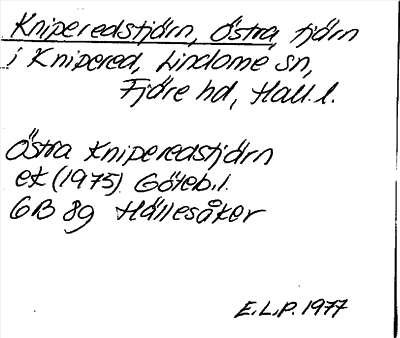 Kniperedstjärn, Östra, tjärn
i Knipered, Lindome sn,
Fjäre hd, Hall. l.
Östra Kniperedstjärn
ek (1975) Göteb. l.
6B 8g Hällesåker
E.L.P. 1977